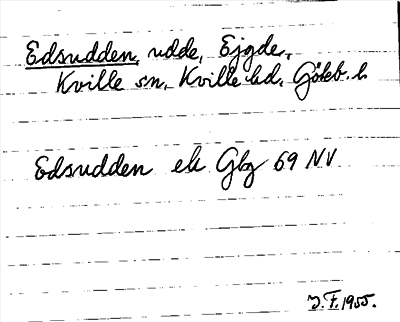 Edsudden, udde, Ejgde,
Kville sn, Kville hd, Göteb. l.
Edsudden ek Gbg 69 NV
J.F. 1955.